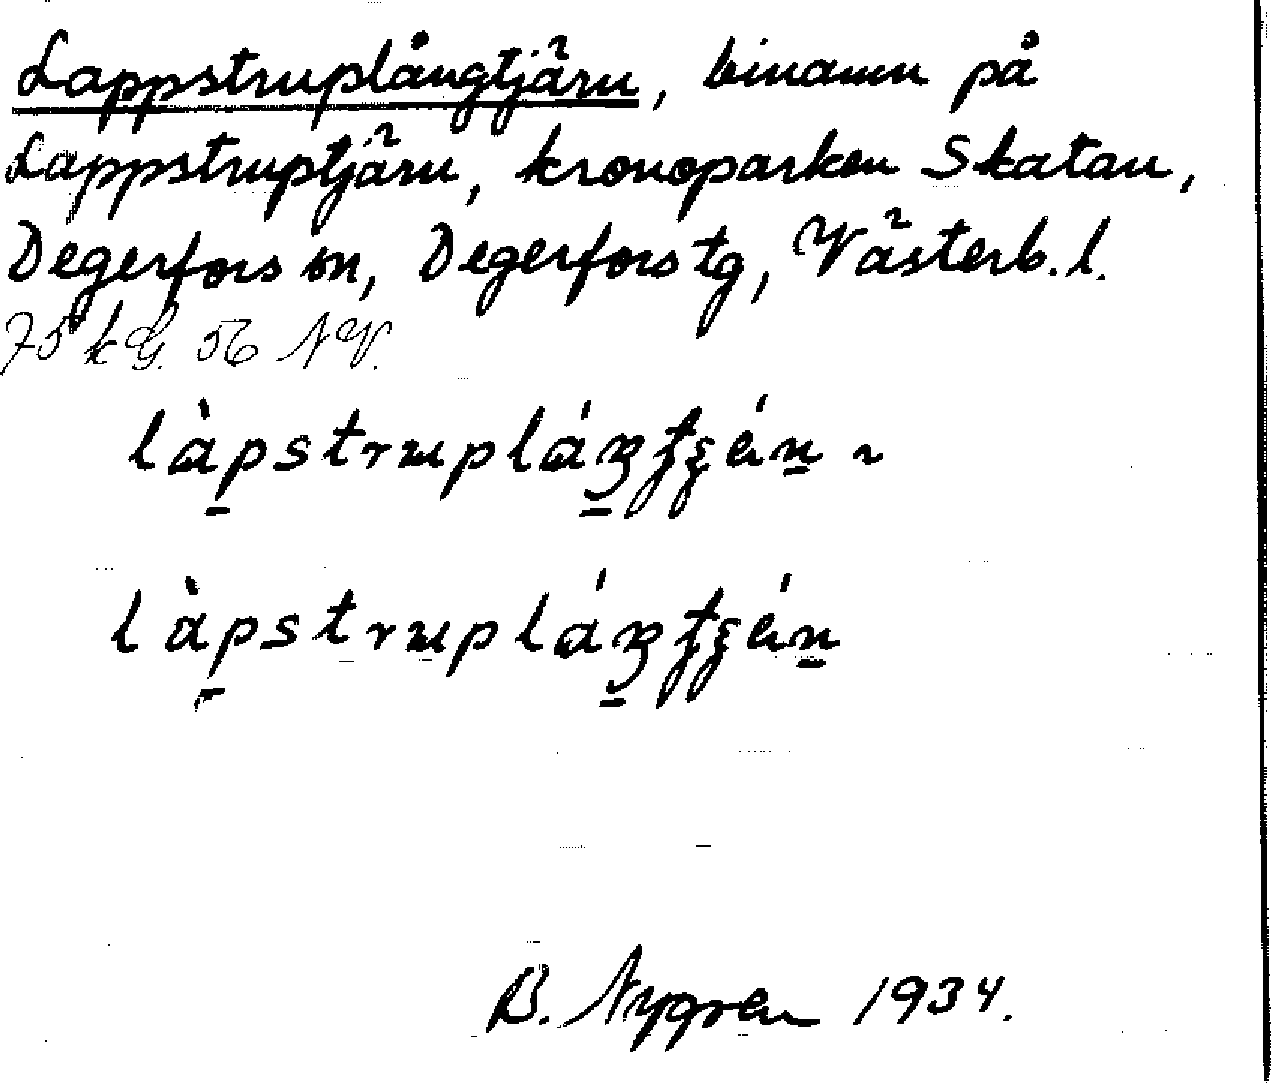 Lappstruplångtjärn, binamn på
Lappstruptjärn, kronoparken Skatan,
Degerfors sn, Degerfors tg, Västerb. l.
75 kG. 56 NV.
làpstrupláŋtʂén ~
làpstrupláŋtʂén
B. Nygren 1934.